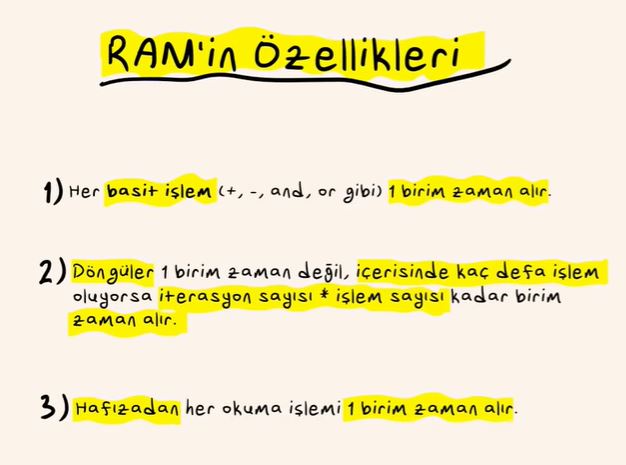 RAM'in Özellikleri
1) Her basit işlem (+, -, and, or gibi) 1 birim zaman alır.
2) Döngüler 1 birim zaman değil, içerisinde kaç defa işlem
oluyorsa iterasyon sayısı * işlem sayısı kadar birim
zaman alır.
3) Hafızadan her okuma işlemi 1 birim zaman alır.